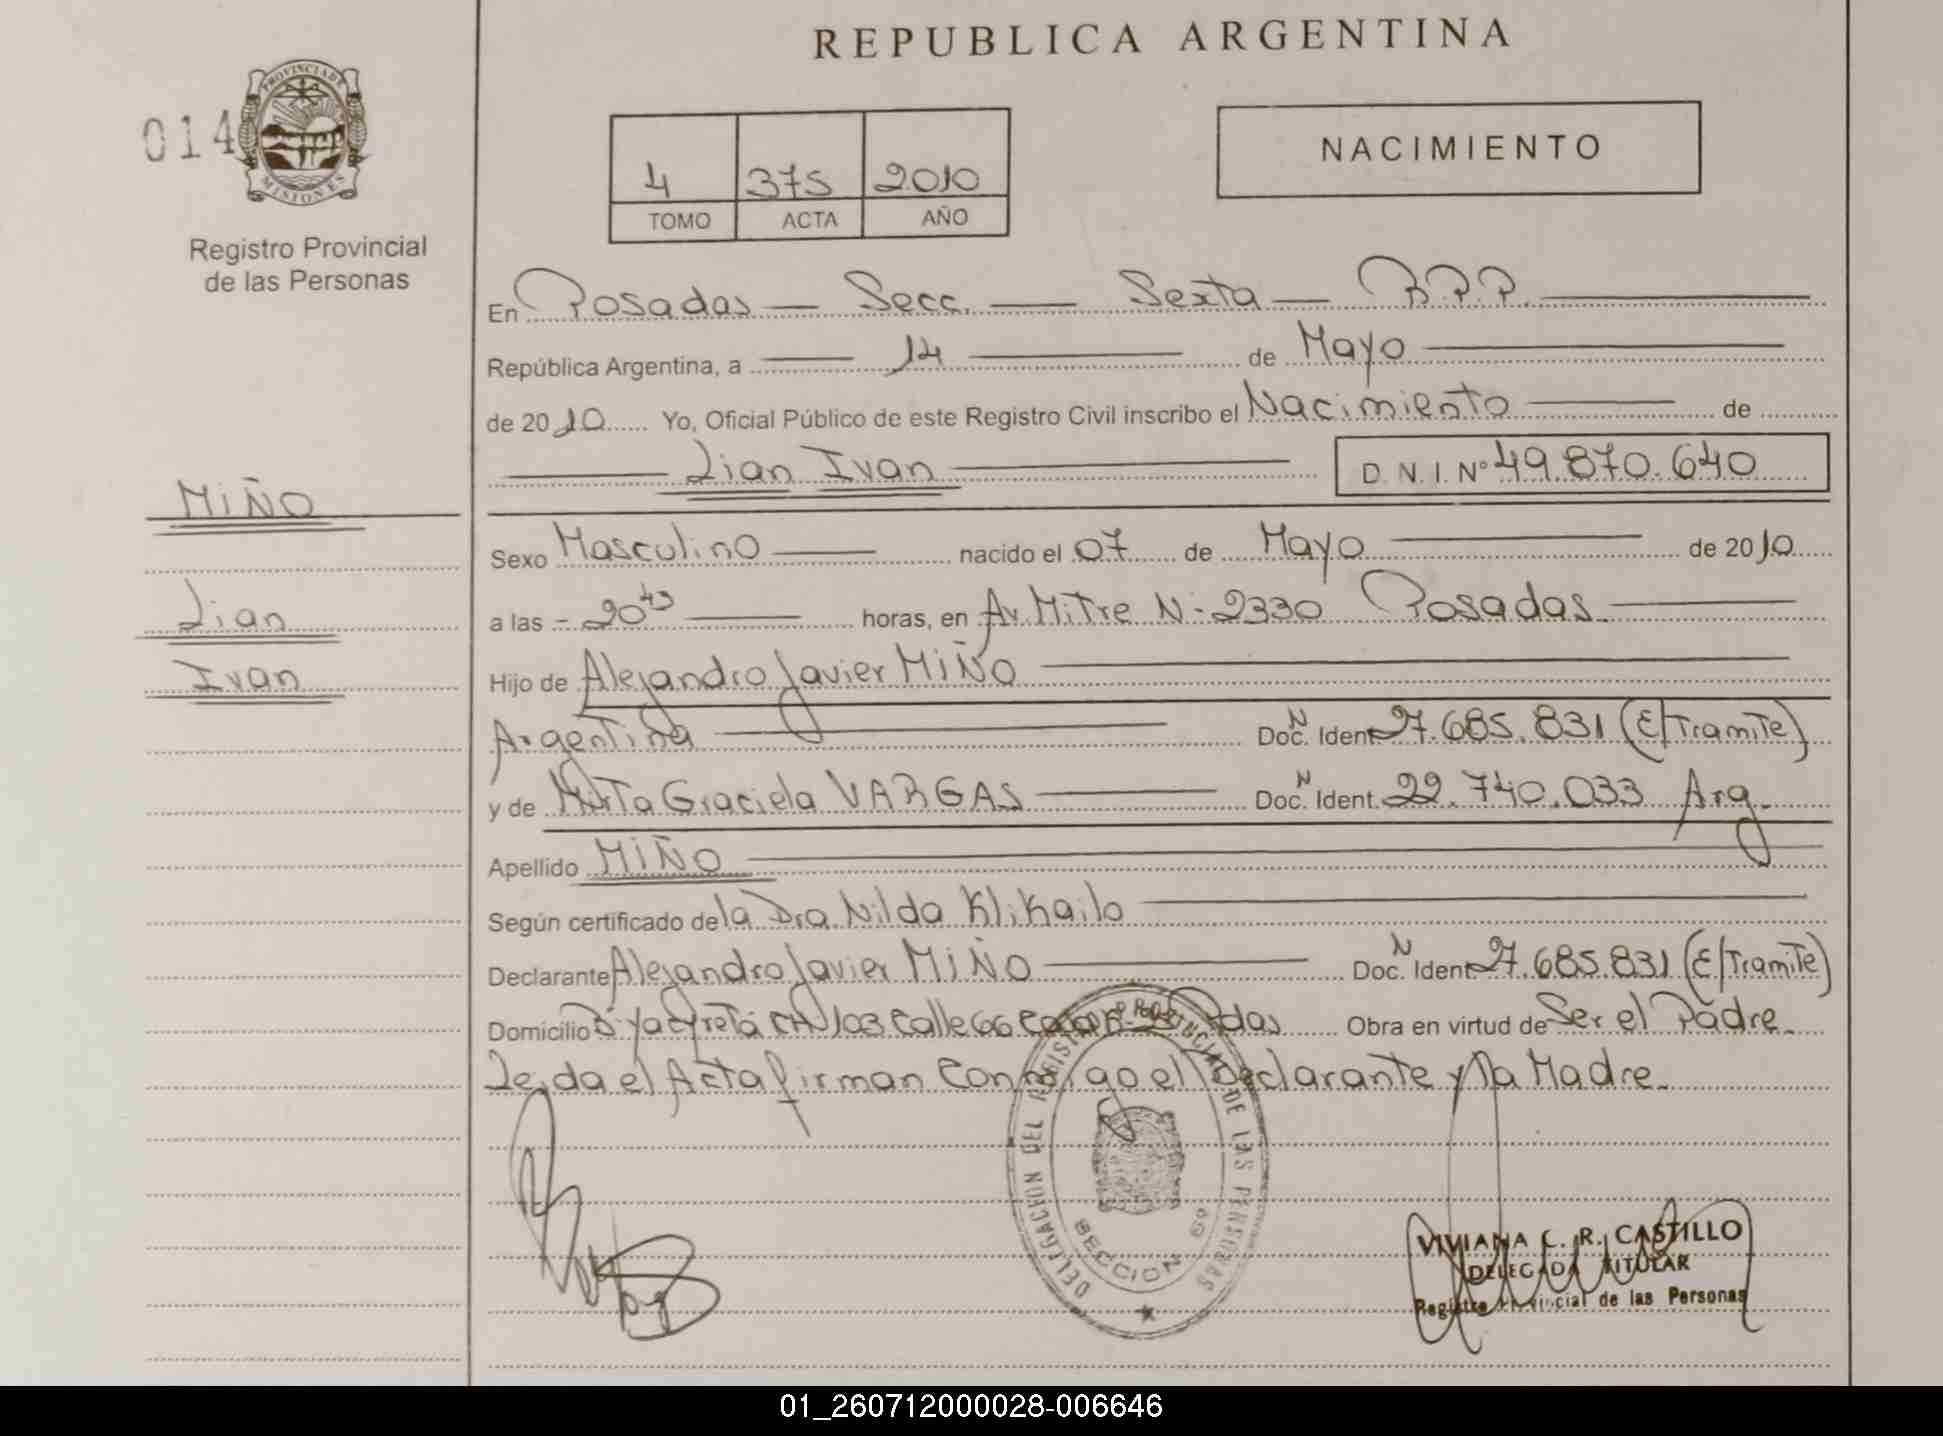 REPUBLICA ARGENTINA
014
PROVINCIA DE
MISIONES
Registro Provincial
de las Personas
4 375 2010
TOMO ACTA AÑO
NACIMIENTO
En Posadas — Secc. — Sexta — R.P.P.
República Argentina, a — 14 — de Mayo
de 2010 Yo, Oficial Público de este Registro Civil inscribo el Nacimiento — de
Lian Ivan — D.N.I. Nº 49.870.640
MIÑO
Lian
Ivan
Sexo Masculino — nacido el 07 de Mayo — de 2010
a las - 20 43 — horas, en Av. Mitre N- 2330 Posadas.
Hijo de Alejandro Javier MIÑO
Argentina — Doc. N Ident 27.685.831 (E/Tramite)
y de Mirta Graciela VARGAS — Doc. N Ident. 22.740.033 Arg.
Apellido MIÑO
Según certificado de la Dra. Nilda Klikailo
Declarante Alejandro Javier MIÑO — Doc. N Ident 27.685.831 (E/Tramite)
Domicilio Yacyretá CH 103 Calle 66 Pdas Obra en virtud de Ser el Padre.
Leida el Acta firman Conmigo el Declarante y la Madre.
DELEGACION DEL REGISTRO PROVINCIAL DE LAS PERSONAS
SECCION 6º
VIVIANA C. R. CASTILLO
DELEGADA TITULAR
Registro Provincial de las Personas
01_260712000028-006646